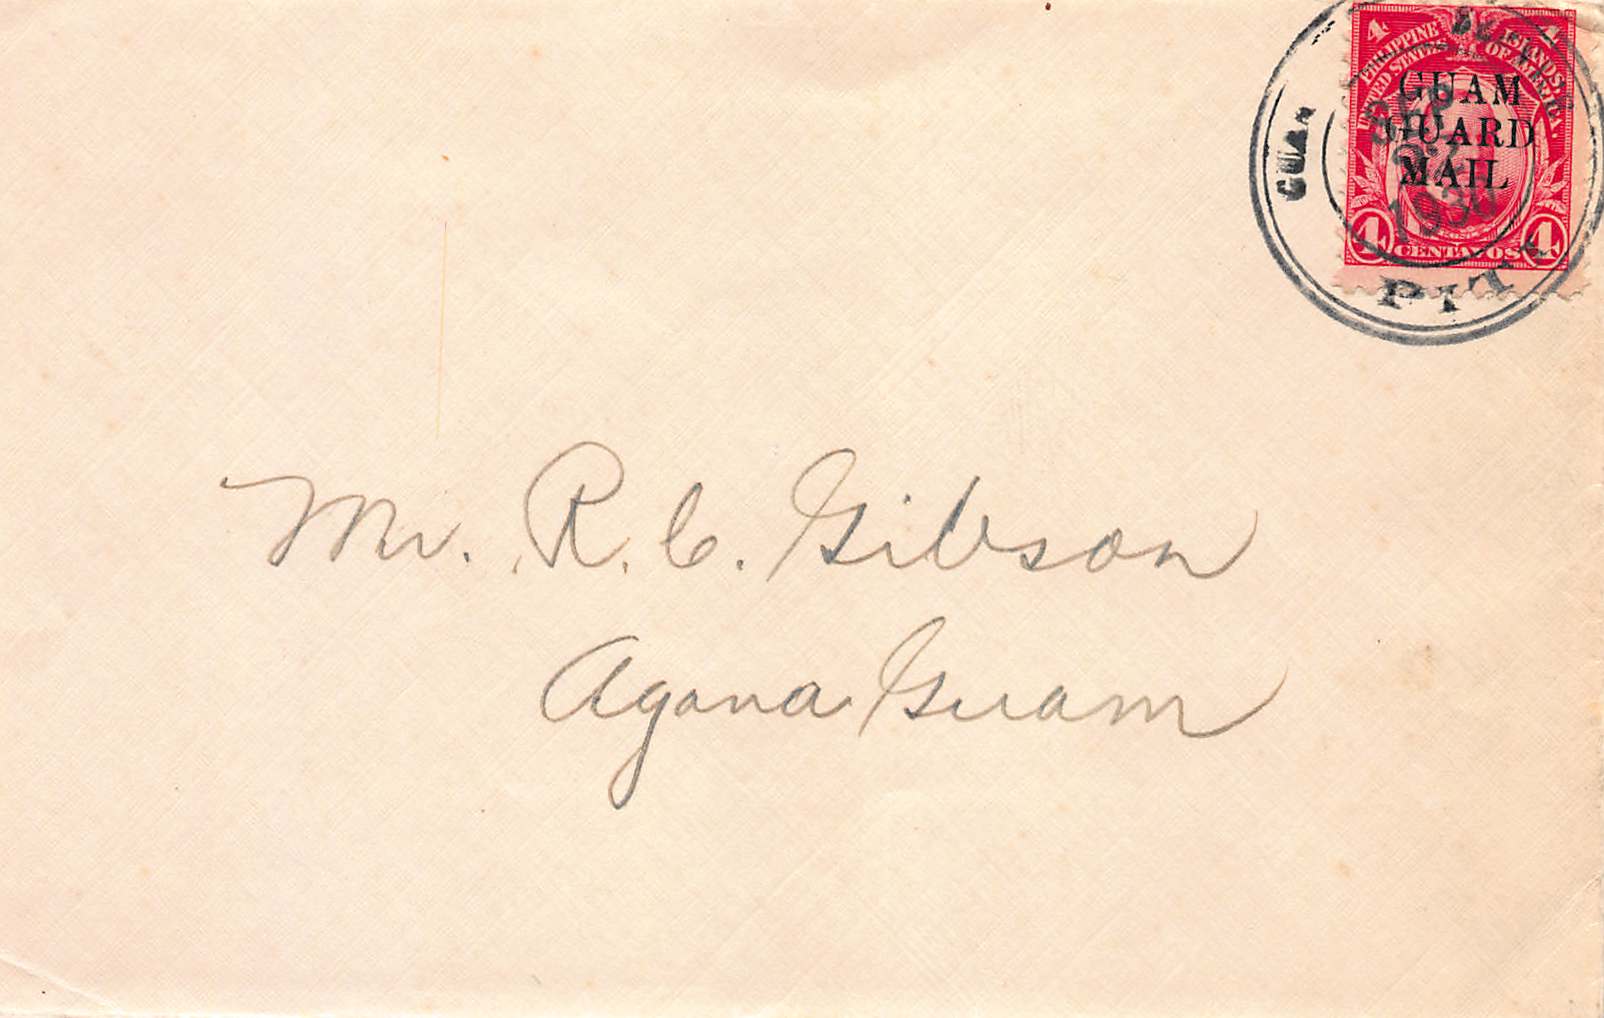 4
PHILIPPINE ISLANDS
UNITED STATES OF AMERICA
GUAM
GUARD
MAIL
4 CENTAVOS 4
GUAM
SEP
1930
PITI
Mr. R. C. Gibson
Agana Guam